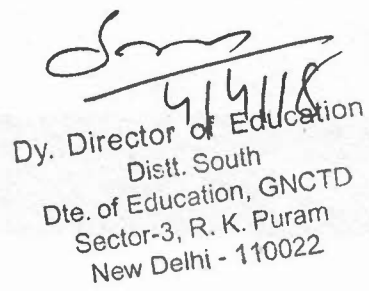 4/4/18
Dy. Director of Education
Distt. South
Dte. of Education, GNCTD
Sector-3, R. K. Puram
New Delhi - 110022